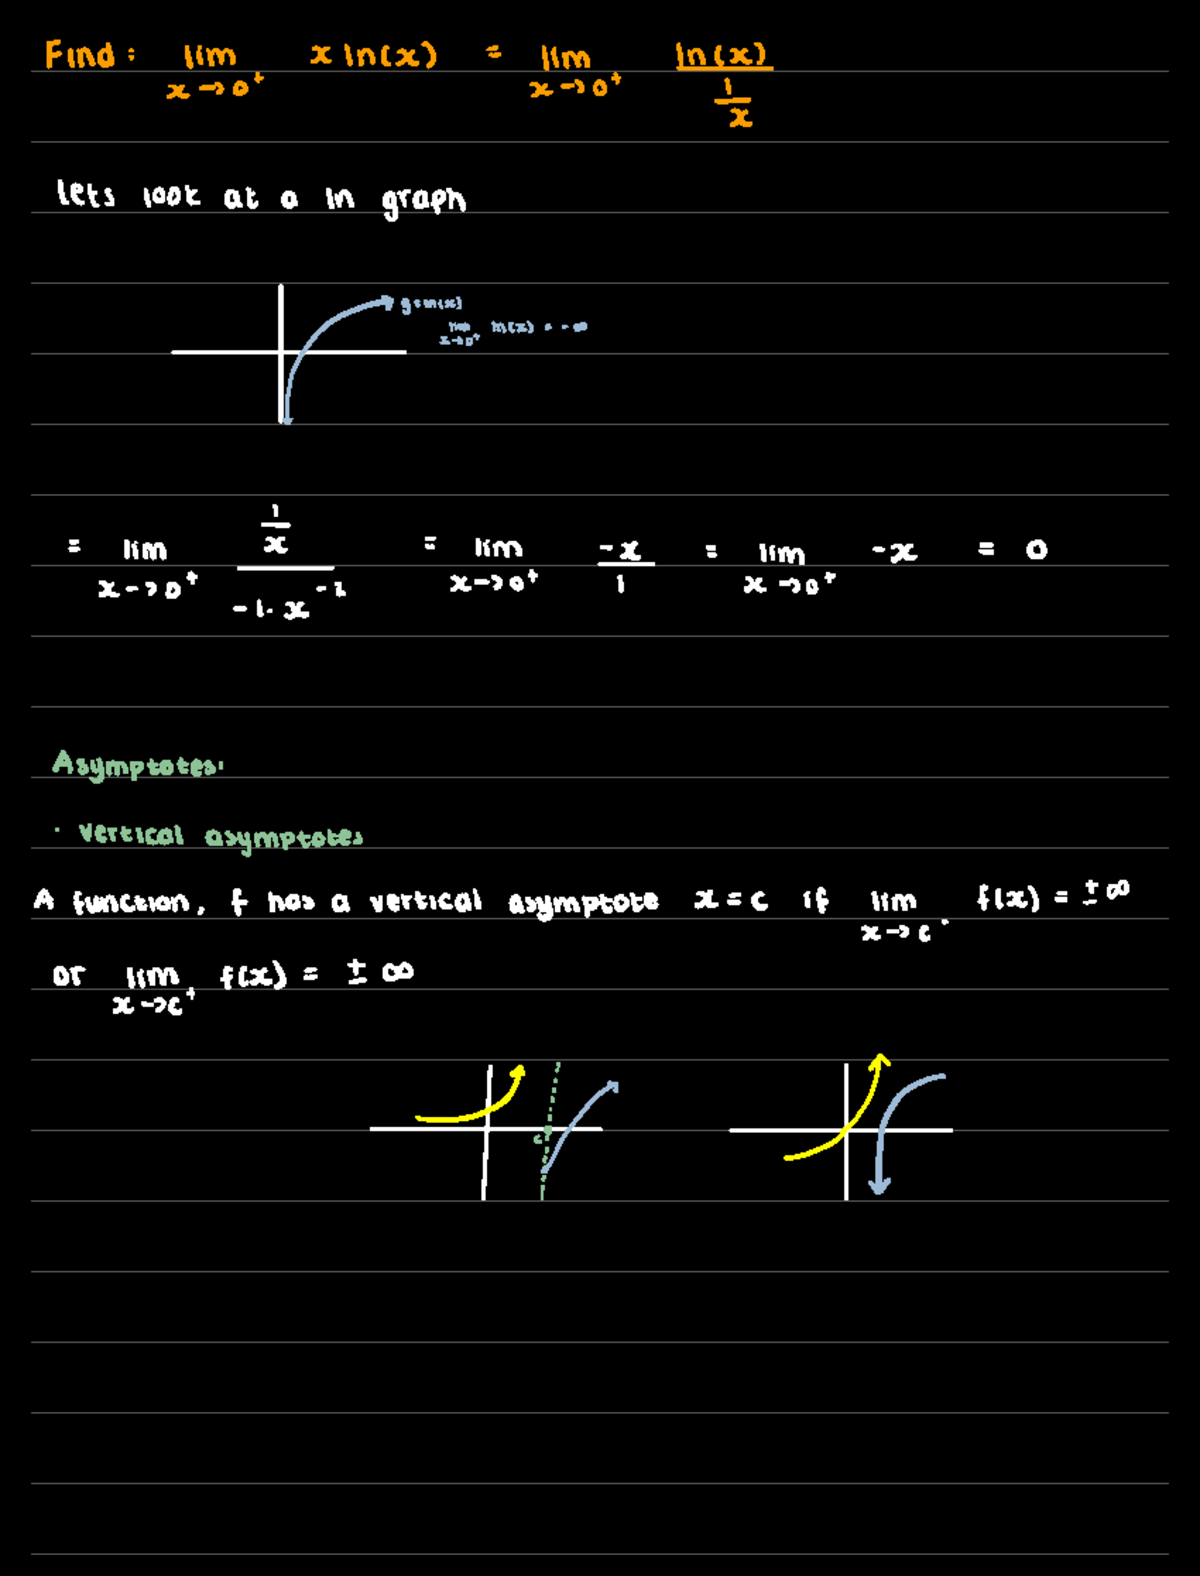 Find: lim x→0⁺ x ln(x) = lim x→0⁺ ln(x) / (1/x)
lets look at a ln graph
lim x→0⁺ ln(x) = -∞
= lim x→0⁺ (1/x) / (-1·x⁻²) = lim x→0⁺ -x/1 = lim x→0⁺ -x = 0
Asymptotes:
· vertical asymptotes
A function, f has a vertical asymptote x = c if lim x→c⁻ f(x) = ±∞
or lim x→c⁺ f(x) = ±∞
c